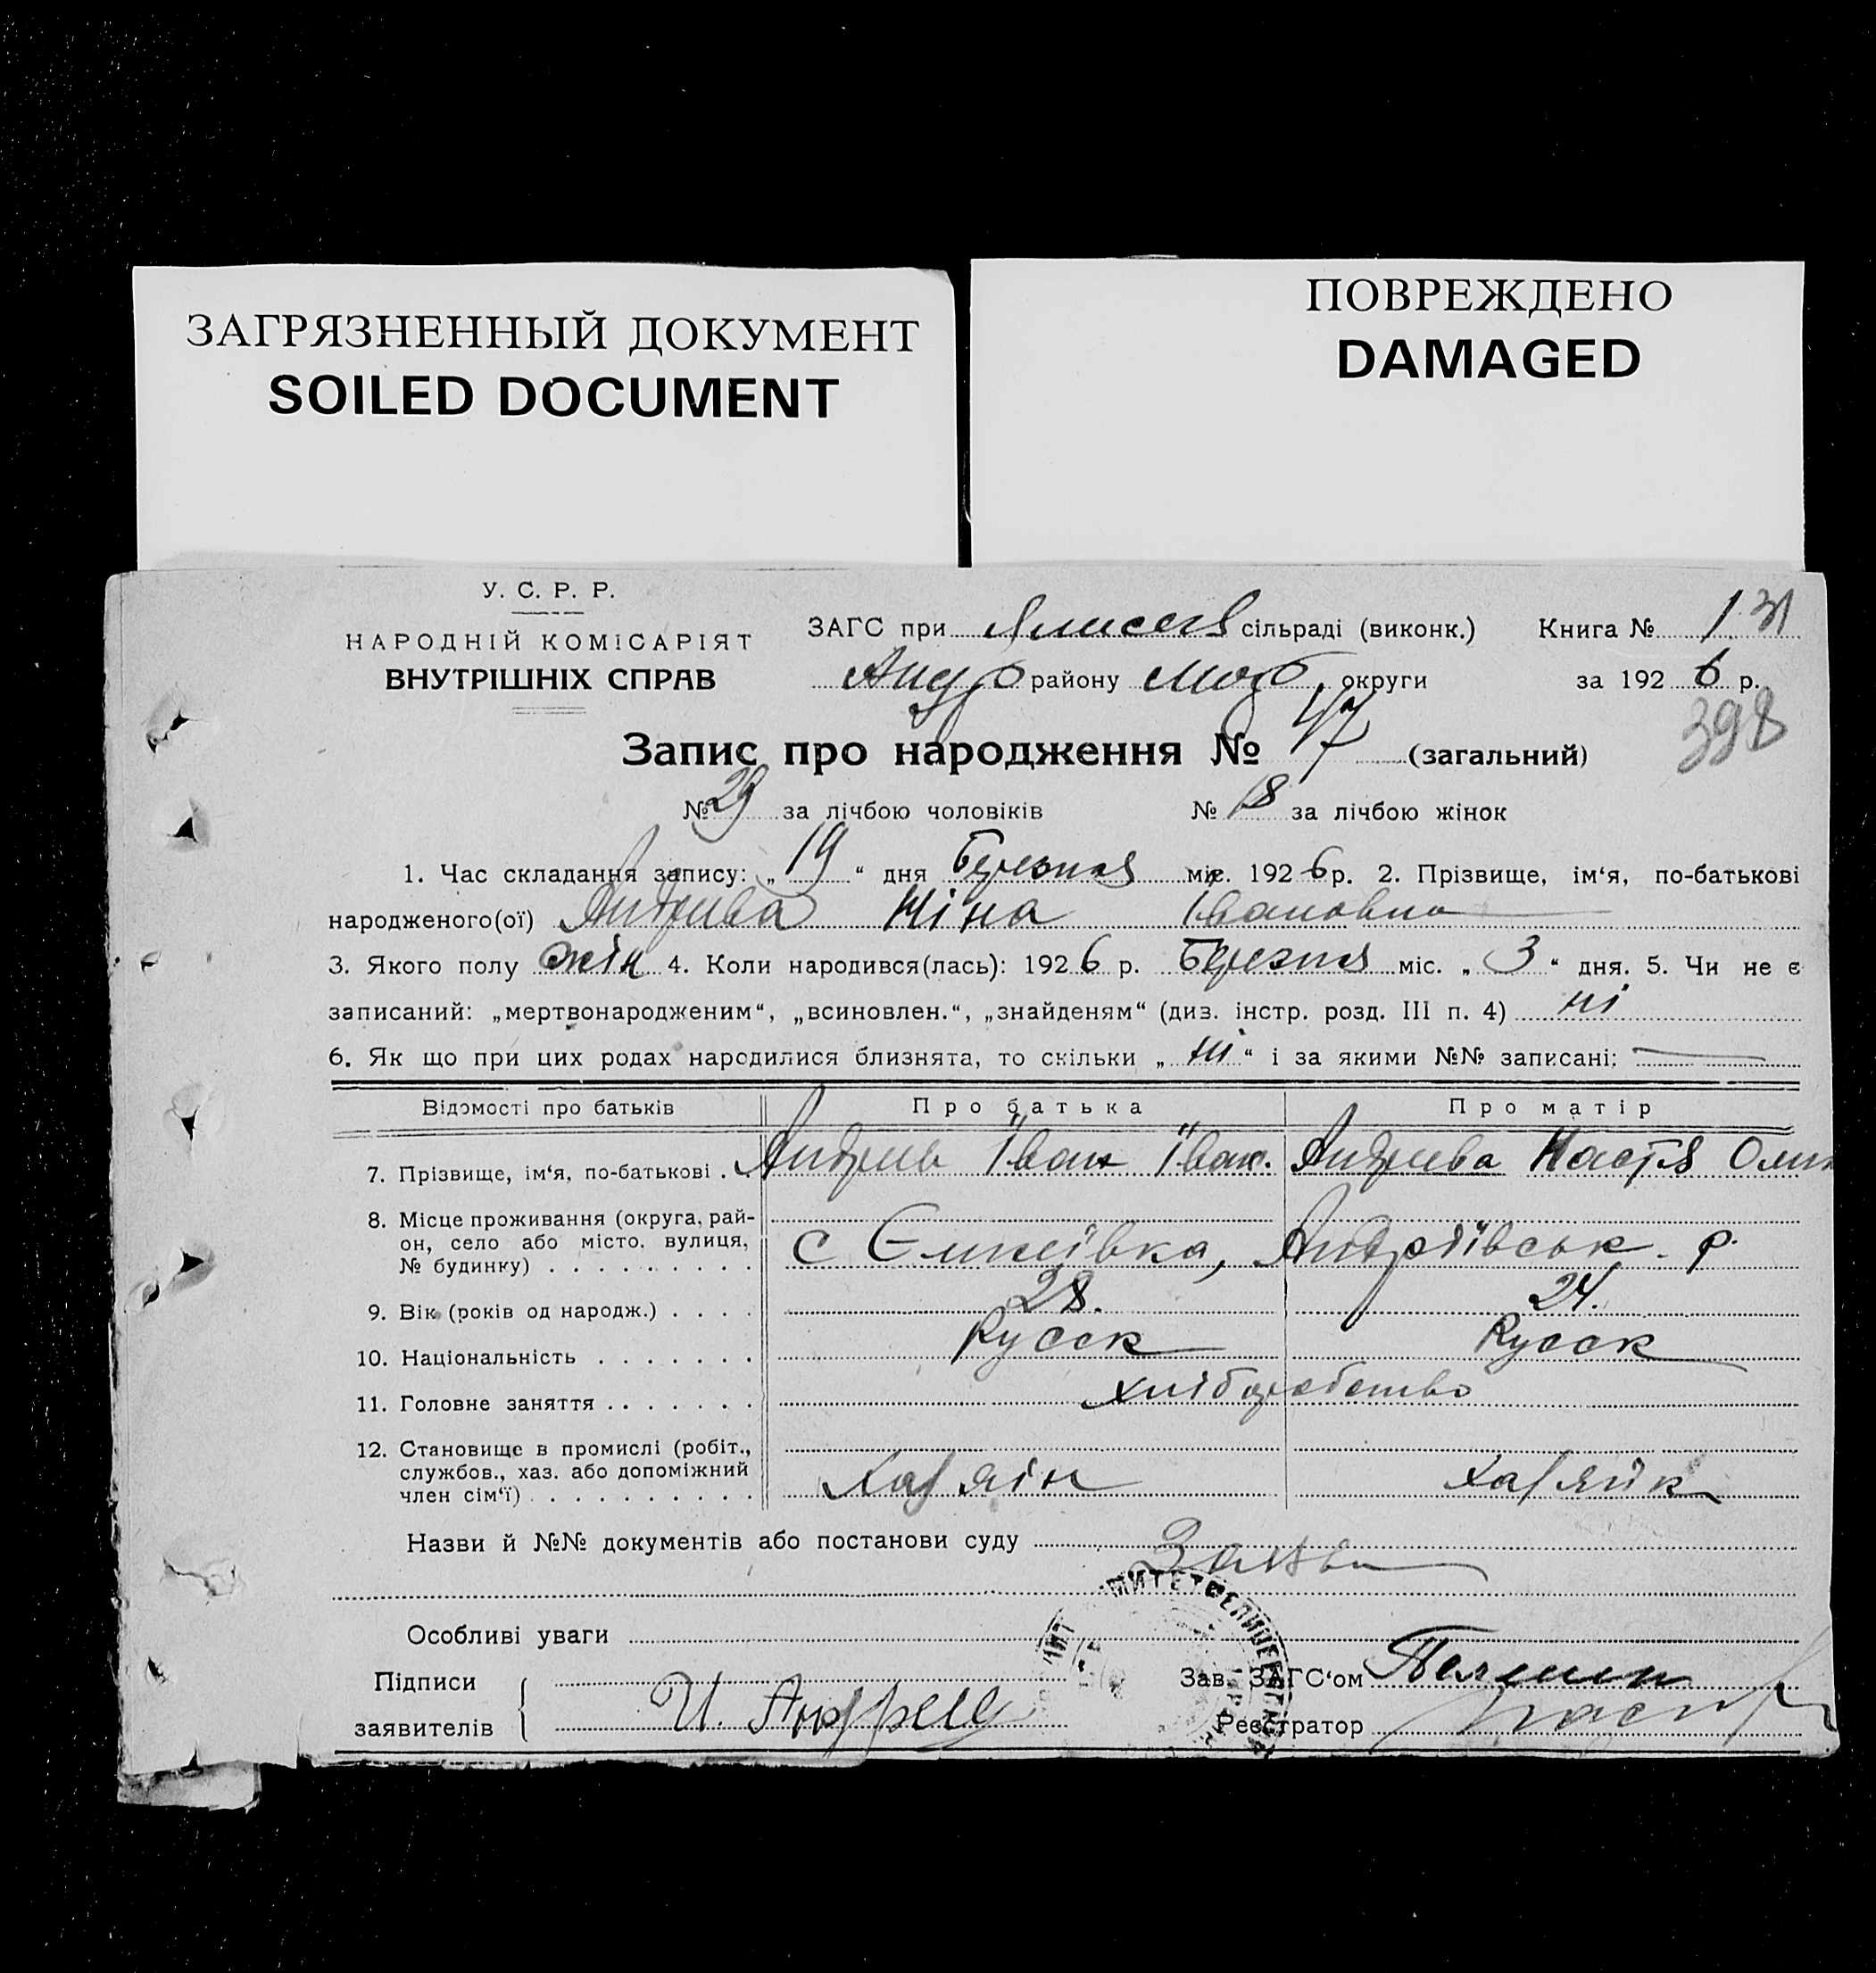 ЗАГРЯЗНЕННЫЙ ДОКУМЕНТ
SOILED DOCUMENT
ПОВРЕЖДЕНО
DAMAGED
У. С. Р. Р.
НАРОДНІЙ КОМІСАРІЯТ
ВНУТРІШНІХ СПРАВ
ЗАГС при сільраді (виконк.) Книга № 1 31
району округи за 1926 р.
398
Запис про народження № 47 (загальний)
№ 29 за лічбою чоловіків № 18 за лічбою жінок
1. Час складання запису: „19“ дня Березня міс. 1926 р. 2. Прізвище, ім‘я, по-батькові
народженого(ої) Андрива Ніна Івановна
3. Якого полу жін 4. Коли народився(лась): 1926 р. Березня міс. „3“ дня. 5. Чи не є
записаний: „мертвонародженим“, „всиновлен.“, „знайденям“ (див. інстр. розд. III п. 4) ні
6. Як що при цих родах народилися близнята, то скільки „ні“ і за якими №№ записані:
Відомості про батьків Про батька Про матір
7. Прізвище, ім‘я, по-батькові . . Андрив Іван Іван. Андрива Настя
8. Місце проживання (округа, рай-
он, село або місто, вулиця,
№ будинку) . . . . . . . . . с Єлисеївка, Андріївськ. р.
9. Вік (років од народж.) . . . . 28. 24.
10. Національність . . . . . . . Русск Русск
11. Головне заняття . . . . . . . хліборобство
12. Становище в промислі (робіт.,
службов., хаз. або допоміжний
член сім‘ї) . . . . . . . . . . Хазяін Хазяйк
Назви й №№ документів або постанови суду Заява
Особливі уваги
Підписи
заявителів И. Андреев
Зав. ЗАГС‘ом
Реєстратор